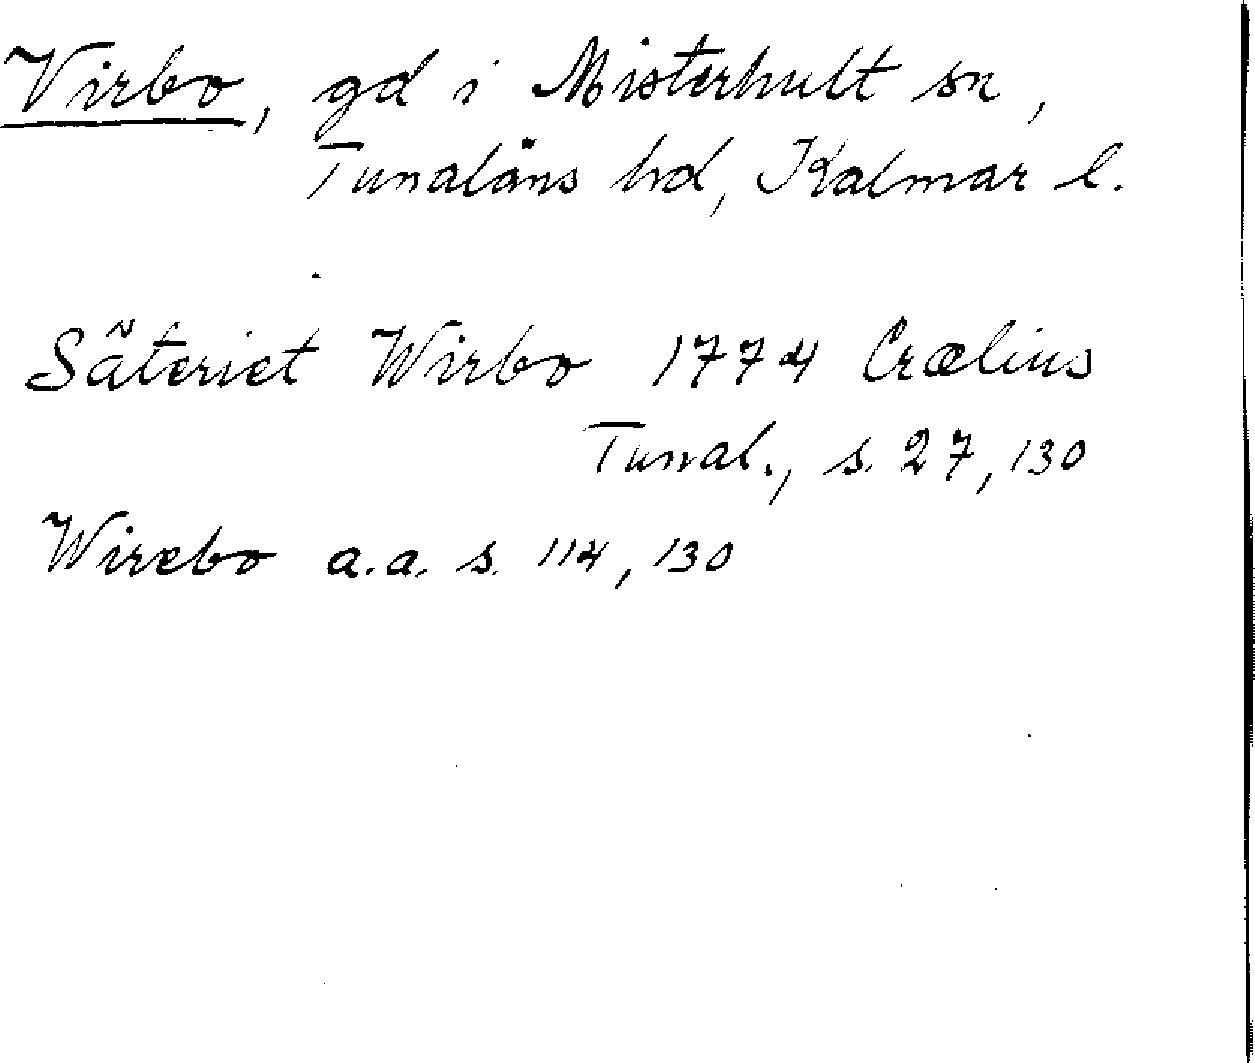 Virbo, gd i Misterhult sn,
Tunaläns hd, Kalmar l.
Säteriet Wirbo 1774 Crælius
Tunal., s. 27, 130
Wirebo a.a. s. 114, 130